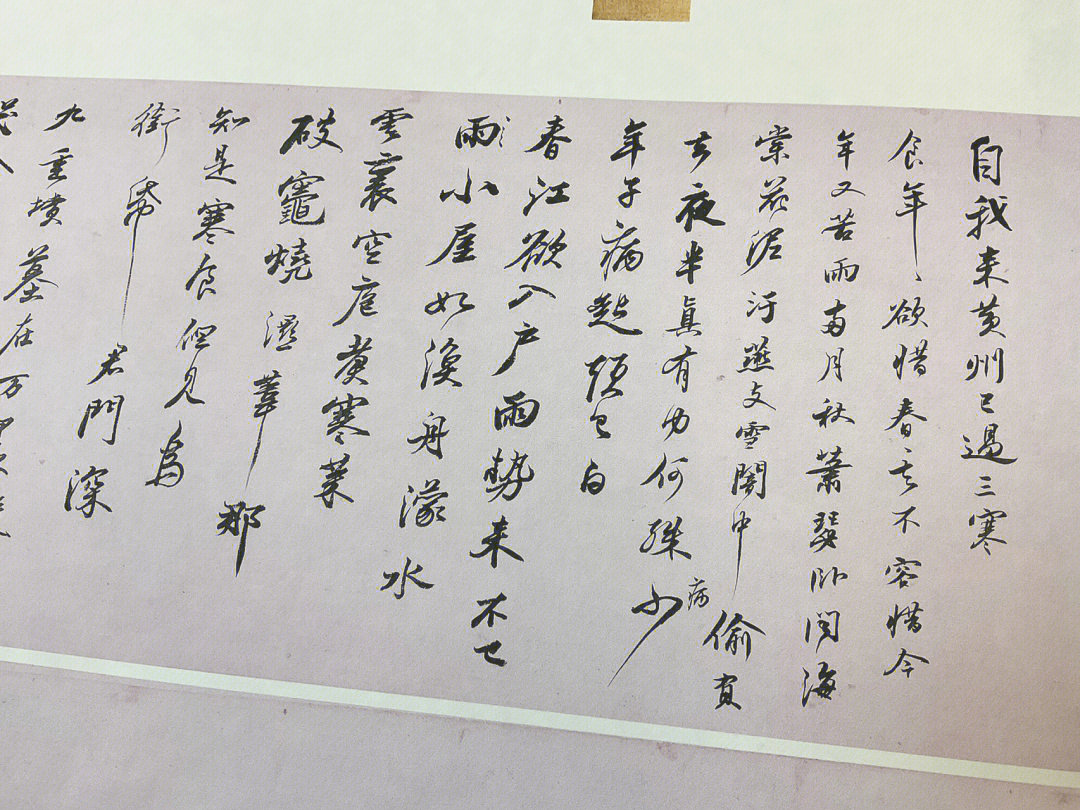 自我来黄州已過三寒
食年〻欲惜春去不容惜今
年又苦雨兩月秋蕭瑟卧聞海
棠花泥汙燕支雪闇中偷負
去夜半真有力何殊病少
年子病起頭已白
春江欲入户雨勢来不已
雨小屋如漁舟濛水
雲裏空庖煮寒菜
破竈燒濕葦那
知是寒食但見烏
銜帋君門深
九重墳墓在万